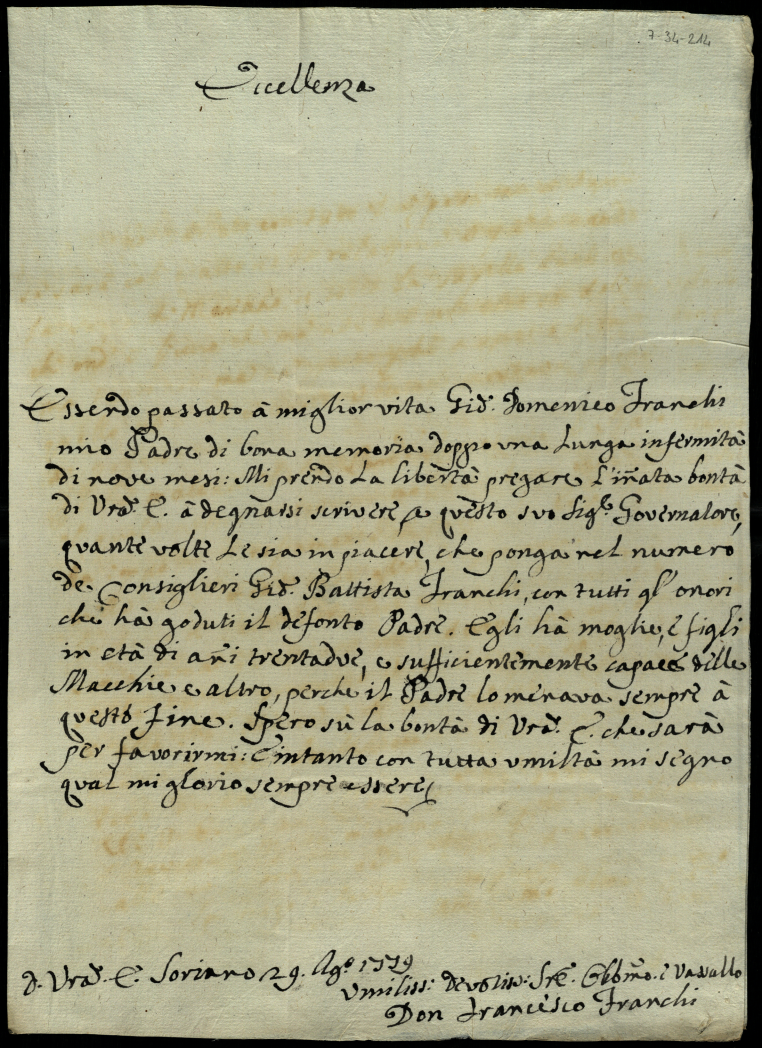 7-34-214
Eccellenza
Essendo passato à miglior vita Gio. Domenico Franchi
mio Padre di bona memoria doppo una lunga infermità
di nove mesi: Mi prendo la libertà pregare l'iñata bontà
di Vrã. E. à degnarsi scrivere a questo suo Sigr. Governatore,
quante volte le sia in piacere, che ponga nel numero
de Consiglieri Gio. Battista Franchi, con tutti gl'onori
che hà goduti il defonto Padre. Egli hà moglie, e figli
in età di añi trentadue, e sufficientemente capace delle
Macchie e altro, perche il Padre lo menava sempre à
questo fine. Spero sù la bontà di Vrã. E. che sarà
per favorirmi: E intanto con tutta umiltà mi segno
qual mi glorio sempre essere
D. Vrã. E. Soriano 29. Ago. 1779
Umiliss: devotiss: Sre. Obbmo. e Vassallo
Don Francesco Franchi